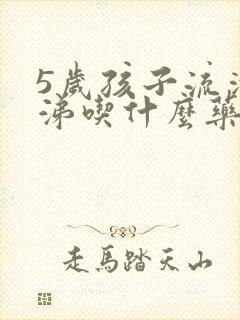 5歲孩子流清
涕喫什麼藥
走馬踏天山